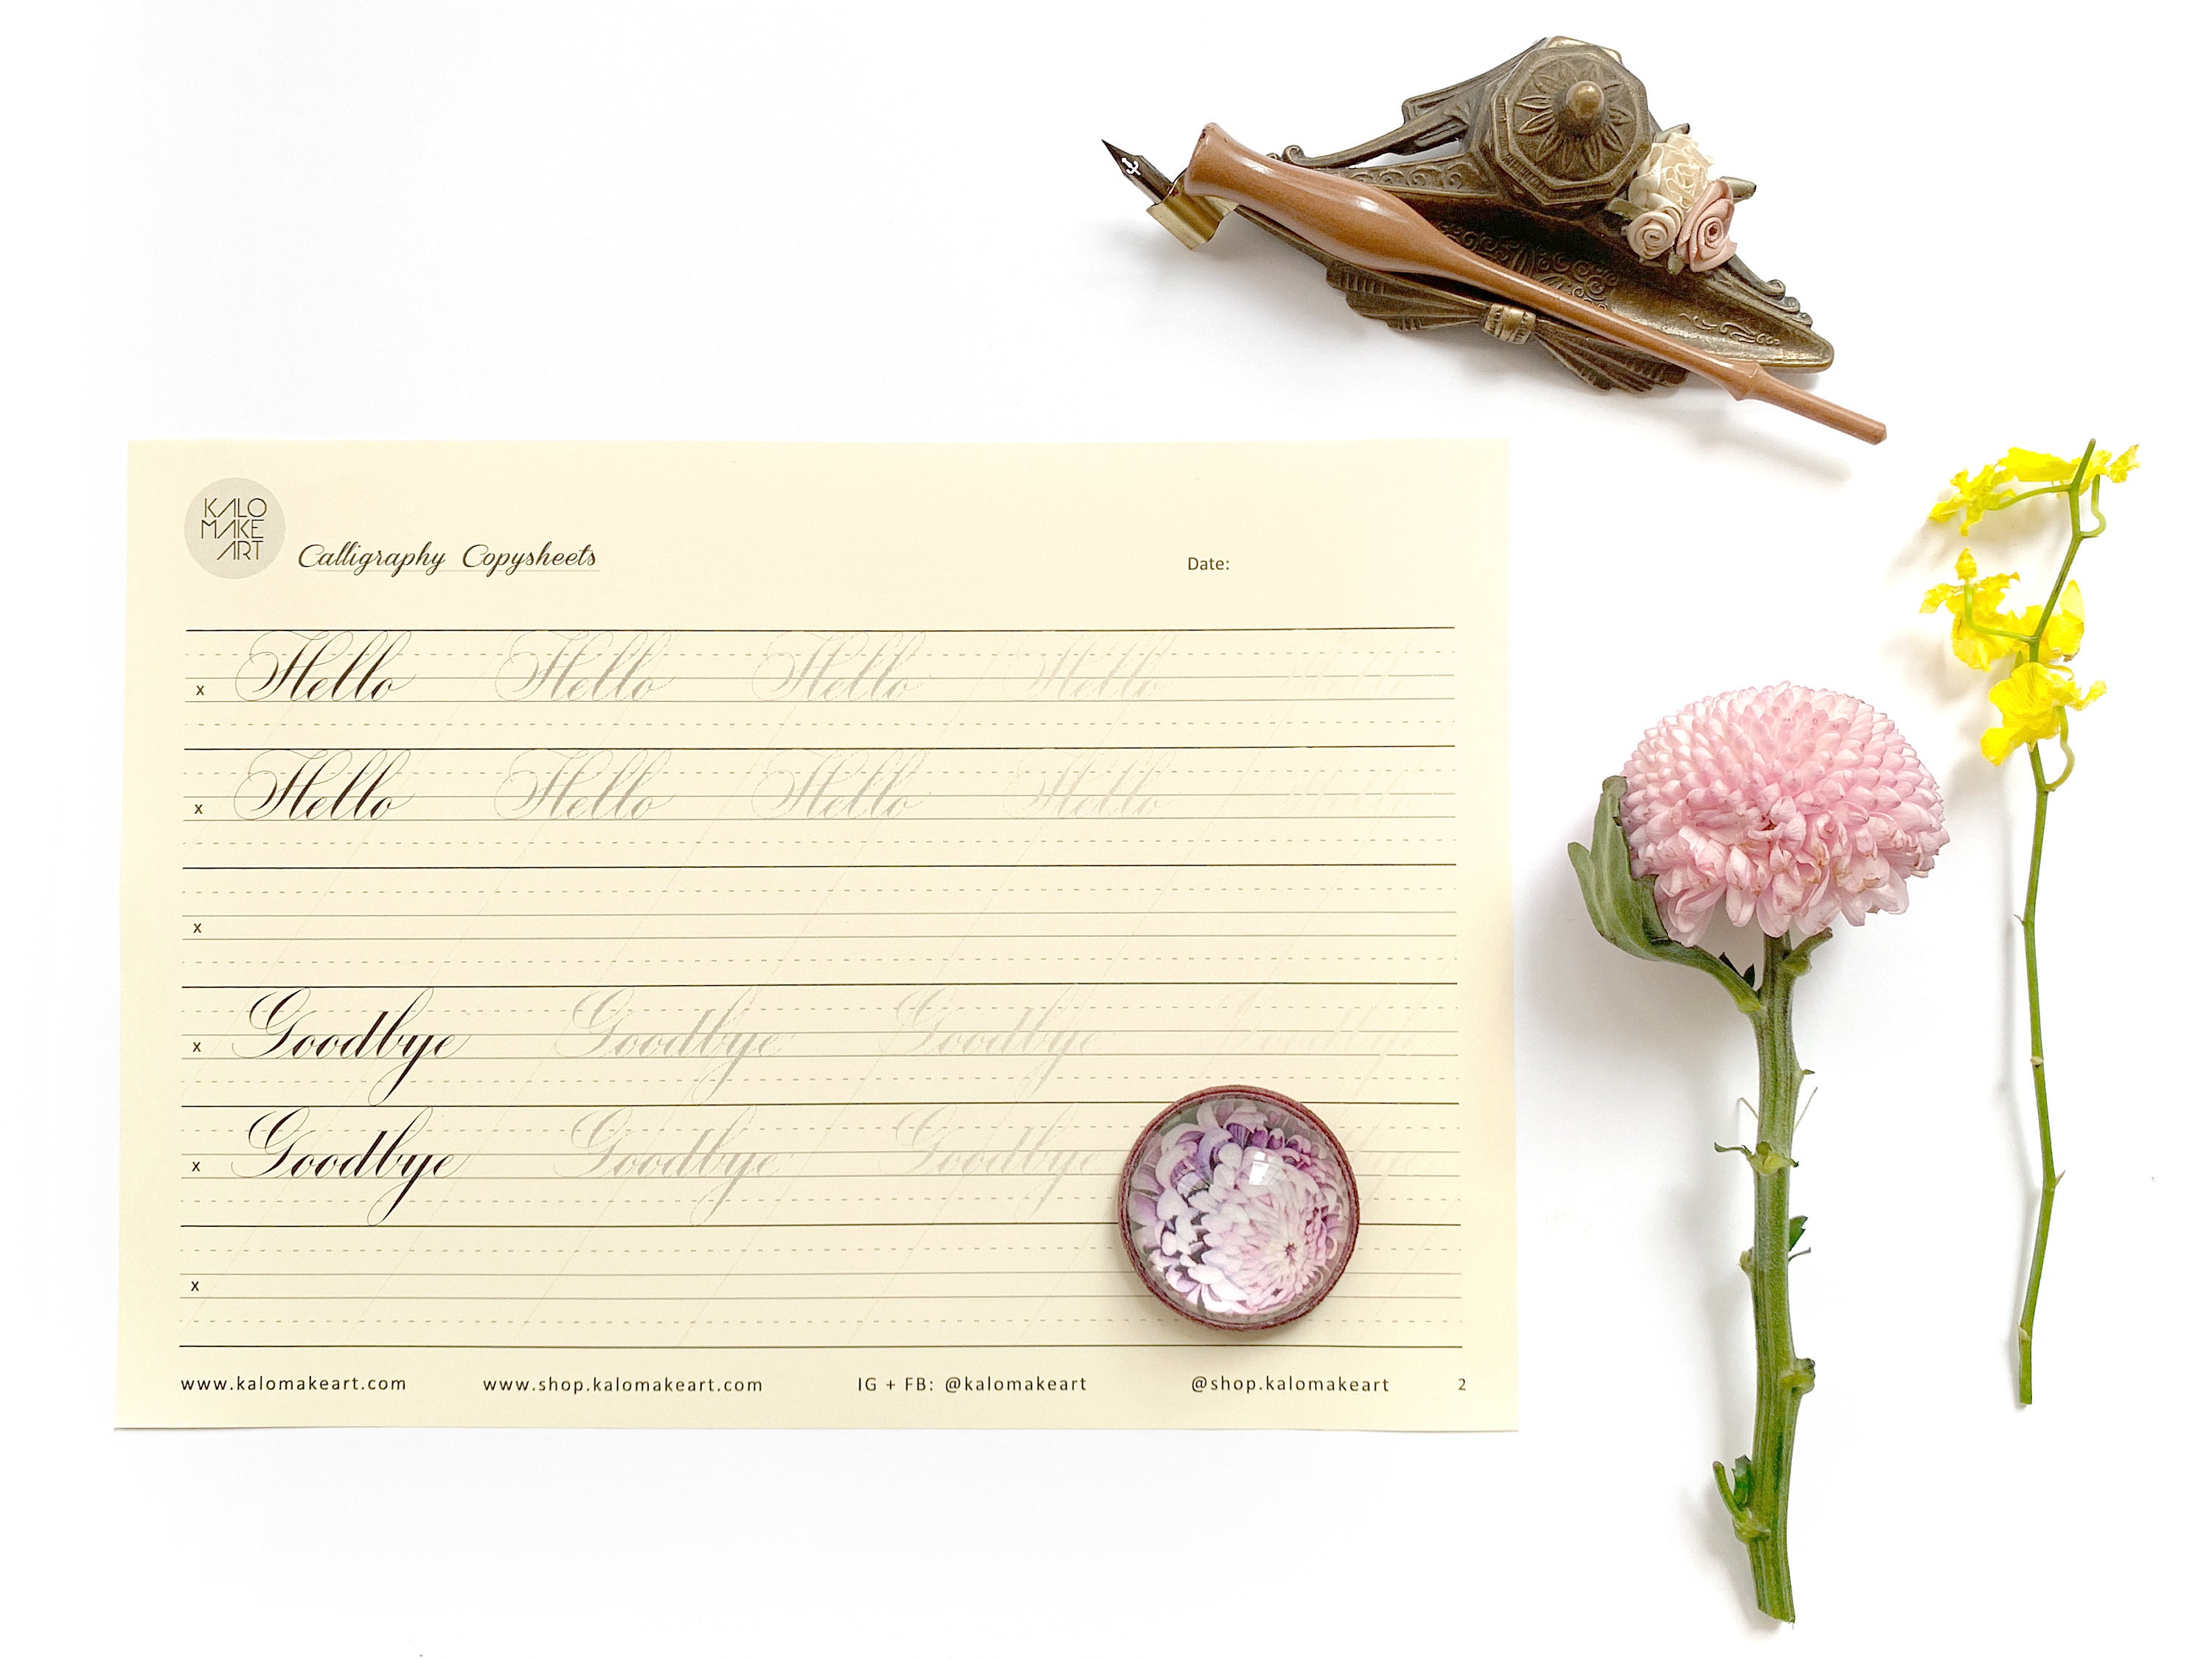 KALO
MAKE
ART
Calligraphy Copysheets
Date:
x Hello Hello Hello Hello Hello
x Hello Hello Hello Hello Hello
x
x Goodbye Goodbye Goodbye Goodbye
x Goodbye Goodbye Goodbye
x
www.kalomakeart.com www.shop.kalomakeart.com IG + FB: @kalomakeart @shop.kalomakeart 2